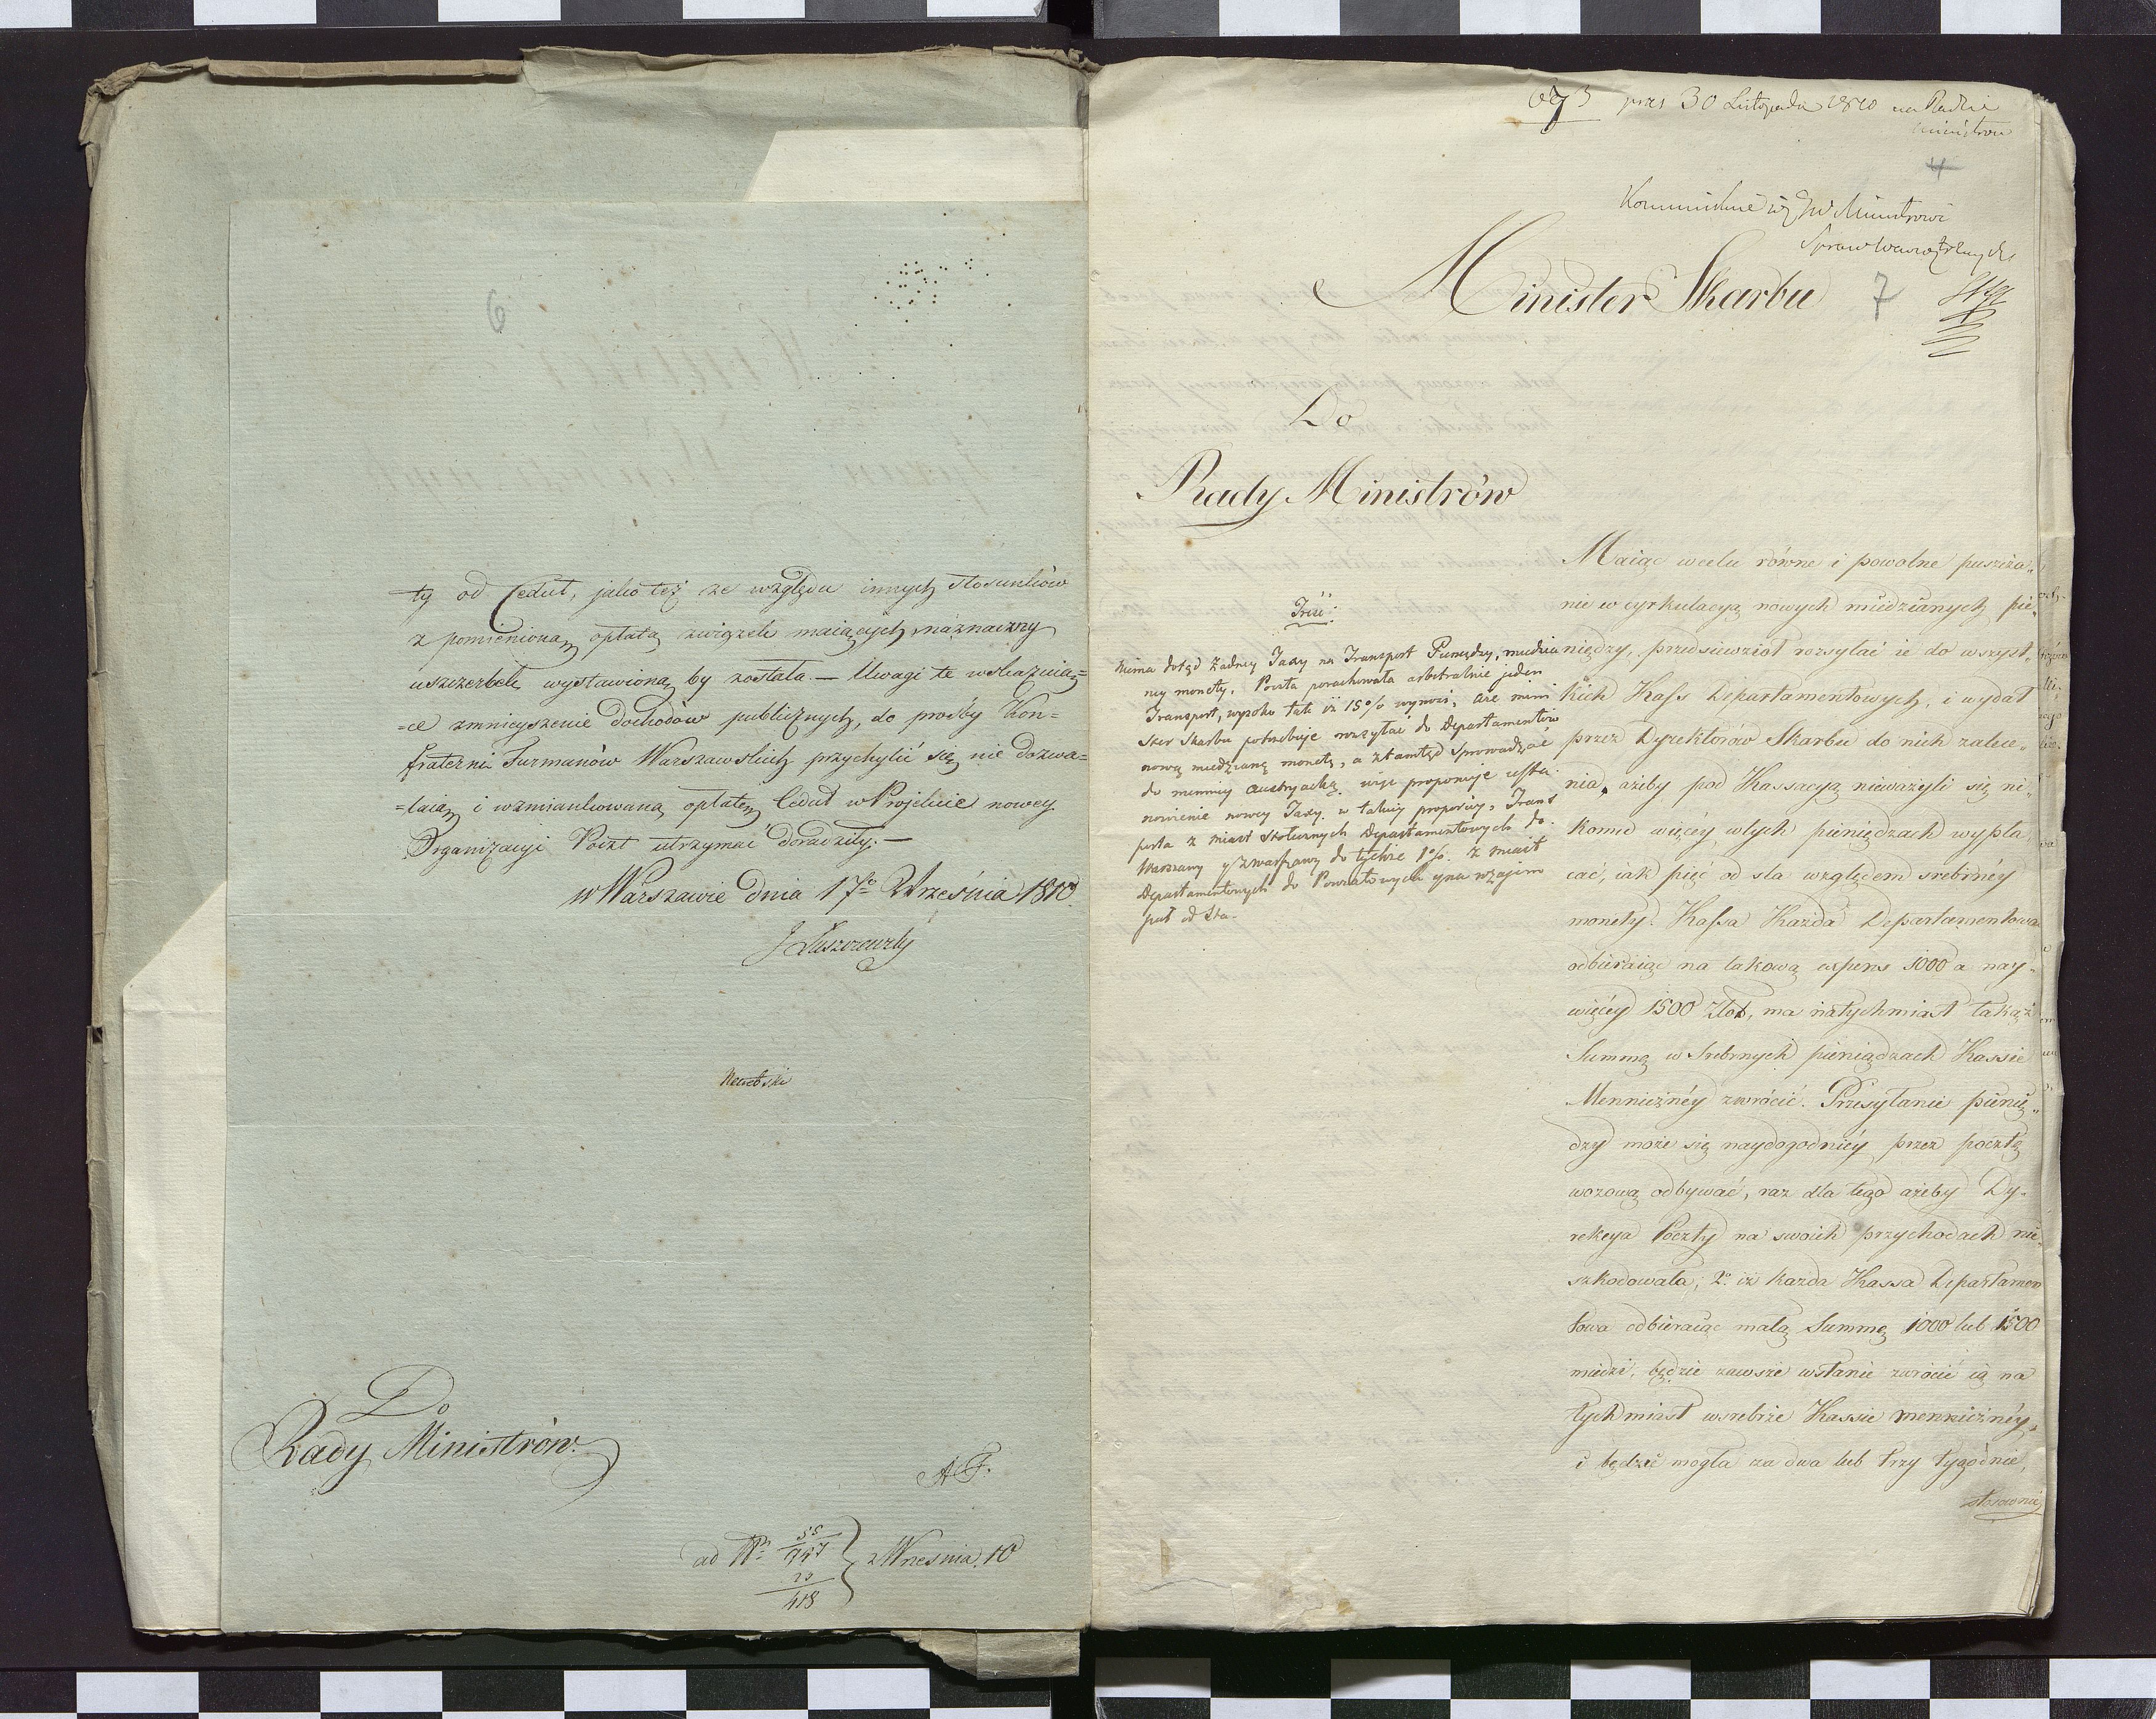 6
ty od Cedut, jako też ze względu innych stosunków
z pomienioną opłatą związek maiących, náznaczny
uszczerbek wystawioną by została. — Uwagi te wskazuią=
=ce zmnieyszenie dochodów publicznych, do prośby Kon=
fraternii Furmanów Warszawskich przychylić się nie dozwa=
=laią i wzmiankowaną opłatę Cedut w Projekcie nowey
Organizacyi Poczt utrzymać doradziły. —
w Warszawie dnia 17º Września 1810.
J Łuszczewski
Do
Rady Ministrów.
A F.
ad Nº 957 z Wrześnią 10
418
przs 30 Listopada 1810 na Radzie
Ministrow
4
Kommunikuie się JW Ministrowi
Spraw Wewnętrznych
Minister Skarbu 7
Do
Rady Ministrów
Treść:
Niema dotąd żadney Taxy na Transport Pieniędzy, miedzia
ney monety. Poczta porachowała arbitralnie jeden
Transport, wysoko tak iż 15% wynosi. Ale mini
ster Skarbu potrzebuje rozsyłać do Departamentów
nową miedzianę monetę, a ztamtąd sprowadzać
do mennicy austryacką, więc proponuje usta
nowienie nowey Taxy w takiey proporcyi, Trans
porta z miast stołecznych Departamentowych do
Warszawy y z Warszawy do tychże 1%. z miast
Departamentowych do Powiatowych y na wzajem
puł od sta.
Maiąc w celu równe i powolne puszcza„
nie w cyrkulacyą nowych miedzianych pie„
niędzy, przedsiewziął rozsyłać ie do wszyst„
kich Kass Departamentowych, i wydał
przez Dyrektorów Skarbu do nich zalece„
nia, ażeby pod Kassacyą nieważyli się ni„
komu więcéy w tych pieniędzach wypła
cać, iak pięć od sta względem srebrnéy
monety. Kassa Każda Departamentowa
odbieraiąc na takową expens 1000 a nay„
więcéy 1500 Złot, ma natychmiast takąż
Summę w srebrnych pieniądzach Kassie
Menniczney zwrócić. Przesyłanie pienię„
dzy może się naydogodniéy przez pocztę
wozową odbywać, raz dla tego ażeby Dy„
rekcya Poczty na swoich przychodach nie
szkodowała, 2º iż każda Kassa Departamen
towa odbieraiąc małą Summę 1000 lub 1500
miedzi, będzie zawsze wstanie zwrócić ią na
tychmiast w srebrze Kassie mennicznéy,
i będzie mogła za dwa lub trzy tygodnie,
stosownie